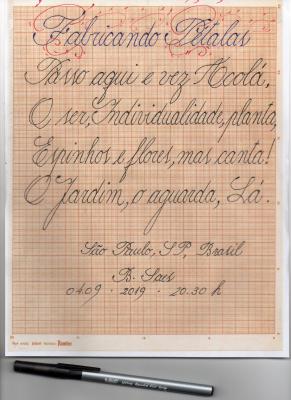 Fabricando Pétalas
Passo aqui e vez Acolá,
O ser, Individualidade, planta,
Espinhos e flores, mas canta!
O Jardim, o aguarda, Lá.
São Paulo, SP, Brasil
B. Saes
04.09 . 2019 . 20.30 h